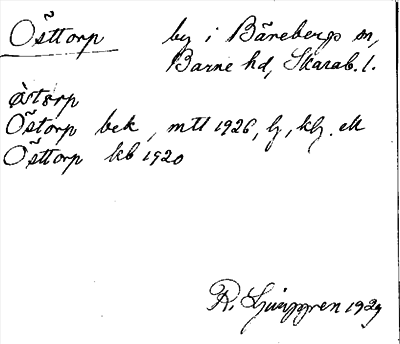 Östtorp by i Bärebergs sn,
Barne hd, Skarab. l.
àstårp
Östorp bek, mtl 1926, lj, klj. ek
Östtorp kb 1920
R. Ljunggren 1929